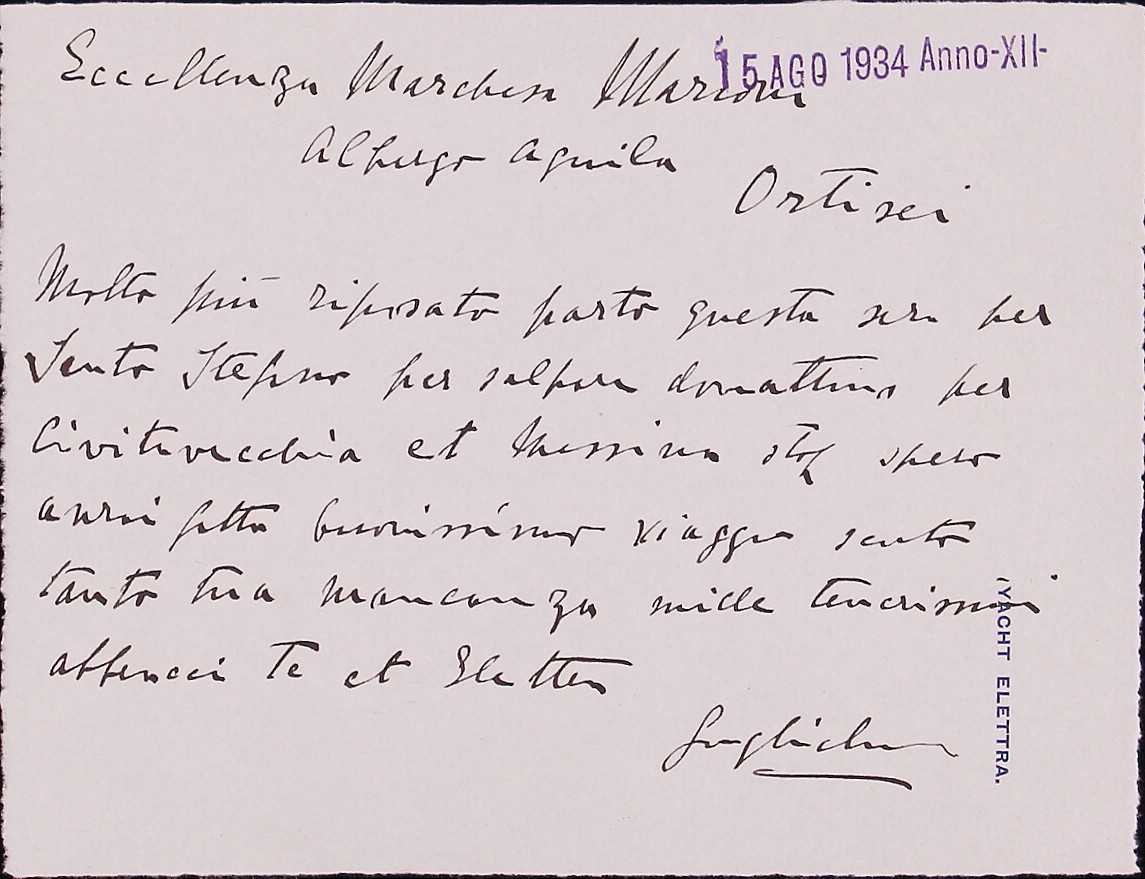 15 AGO 1934 Anno-XII-
Eccellenza Marchesa Marconi
Albergo Aquila
Ortisei
Molto più riposato parto questa sera per
Santo Stefano per salpare domattina per
Civitavecchia et Messina stop spero
avrai fatto buonissimo viaggio sento
tanto tua mancanza mille tenerissimi
abbracci Te et Elettra
Guglielmo
YACHT ELETTRA.